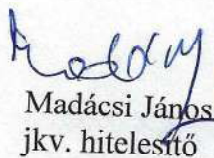 Madácsi János
jkv. hitelesítő